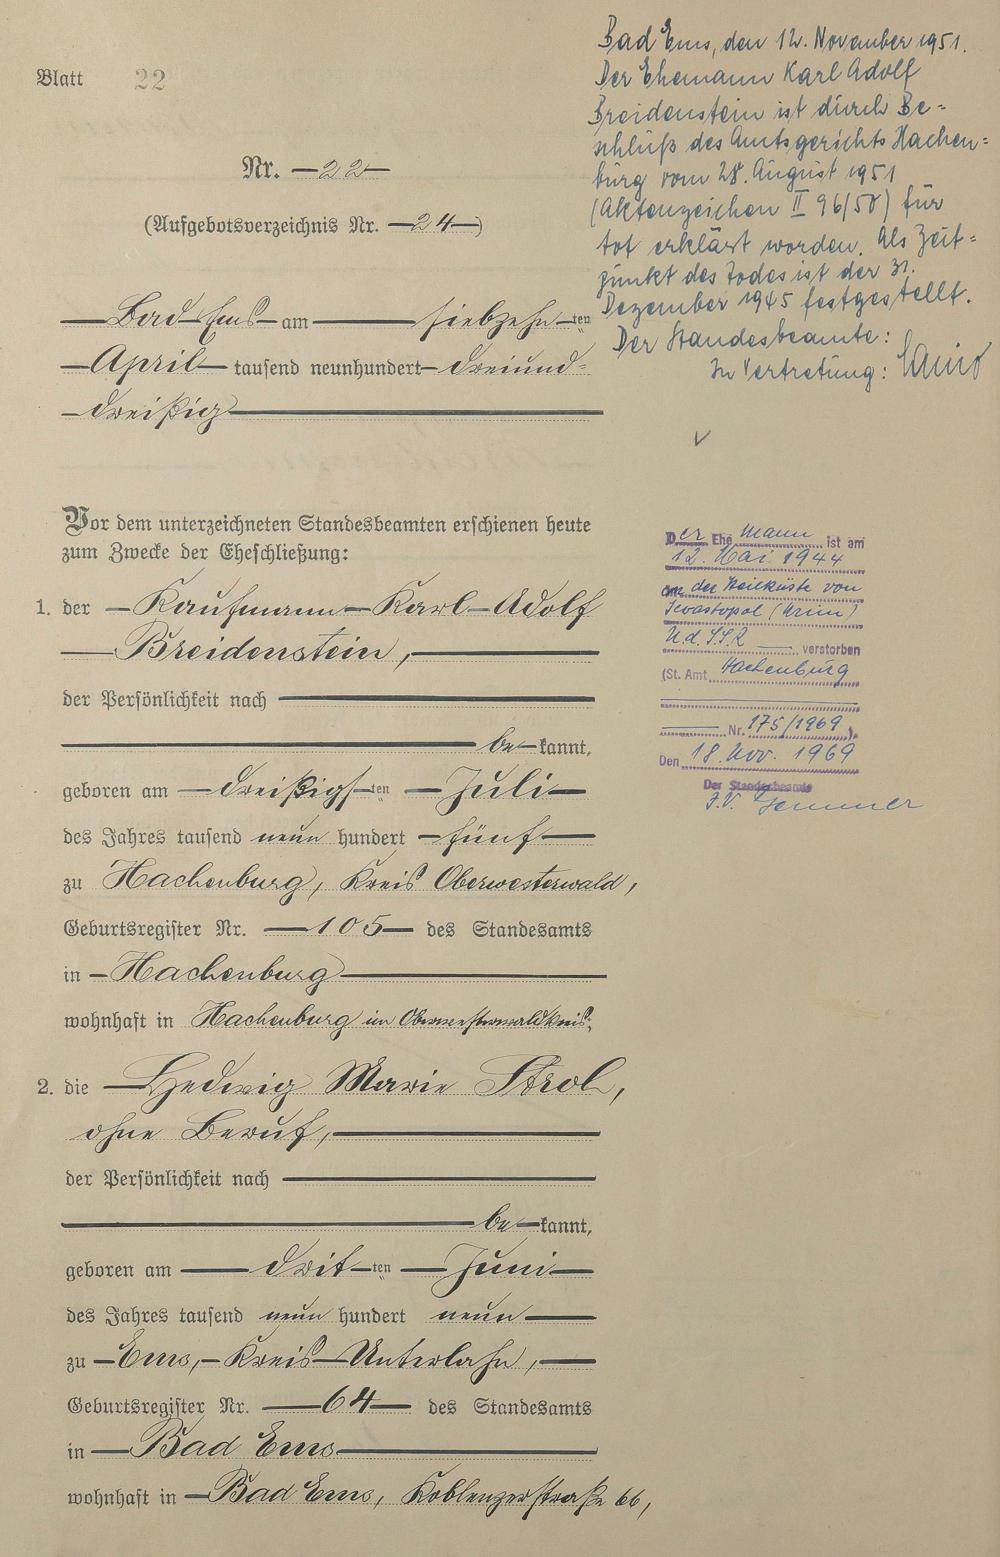 Blatt 22
Nr. 22
(Aufgebotsverzeichnis Nr. 24)
Bad Ems am siebzehn ten
April tausend neunhundert dreiund-
dreißig
Vor dem unterzeichneten Standesbeamten erschienen heute
zum Zwecke der Eheschließung:
1. der Kaufmann Karl Adolf
Breidenstein,
der Persönlichkeit nach
be kannt,
geboren am dreißigs ten Juli
des Jahres tausend neun hundert fünf
zu Hachenburg, Kreis Oberwesterwald,
Geburtsregister Nr. 105 des Standesamts
in Hachenburg
wohnhaft in Hachenburg im Oberwesterwaldkreis,
2. die Hedwig Marie Strol,
ohne Beruf,
der Persönlichkeit nach
be kannt,
geboren am drit ten Juni
des Jahres tausend neun hundert neun
zu Ems, Kreis Unterlahn,
Geburtsregister Nr. 64 des Standesamts
in Bad Ems
wohnhaft in Bad Ems, Koblenzerstraße 66,
Bad Ems, den 12. November 1951.
Der Ehemann Karl Adolf
Breidenstein ist durch Be-
schluß des Amtsgerichts Hachen-
burg vom 28. August 1951
(Aktenzeichen II 96/50) für
tot erklärt worden. Als Zeit-
punkt des Todes ist der 31.
Dezember 1945 festgestellt.
Der Standesbeamte:
In Vertretung:
Der Ehe mann ist am
12. Mai 1944
an der Steilküste von
Sewastopol (Krim)
U.d.S.S.R verstorben
(St. Amt Hachenburg
Nr. 175/1969).
Den 18. Nov. 1969
Der Standesbeamte
I.V. Gemmer